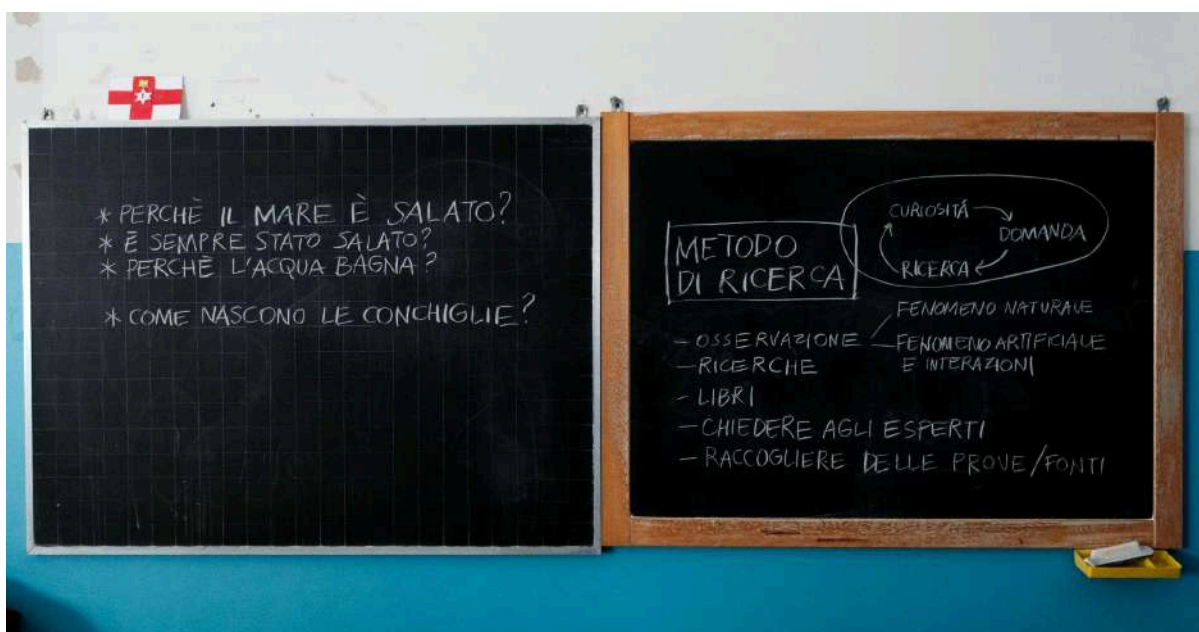 * PERCHÈ IL MARE È SALATO?
* È SEMPRE STATO SALATO?
* PERCHÈ L'ACQUA BAGNA?
* COME NASCONO LE CONCHIGLIE?
METODO
DI RICERCA
CURIOSITÁ
DOMANDA
RICERCA
- OSSERVAZIONE
FENOMENO NATURALE
FENOMENO ARTIFICIALE
E INTERAZIONI
- RICERCHE
- LIBRI
- CHIEDERE AGLI ESPERTI
- RACCOGLIERE DELLE PROVE/FONTI